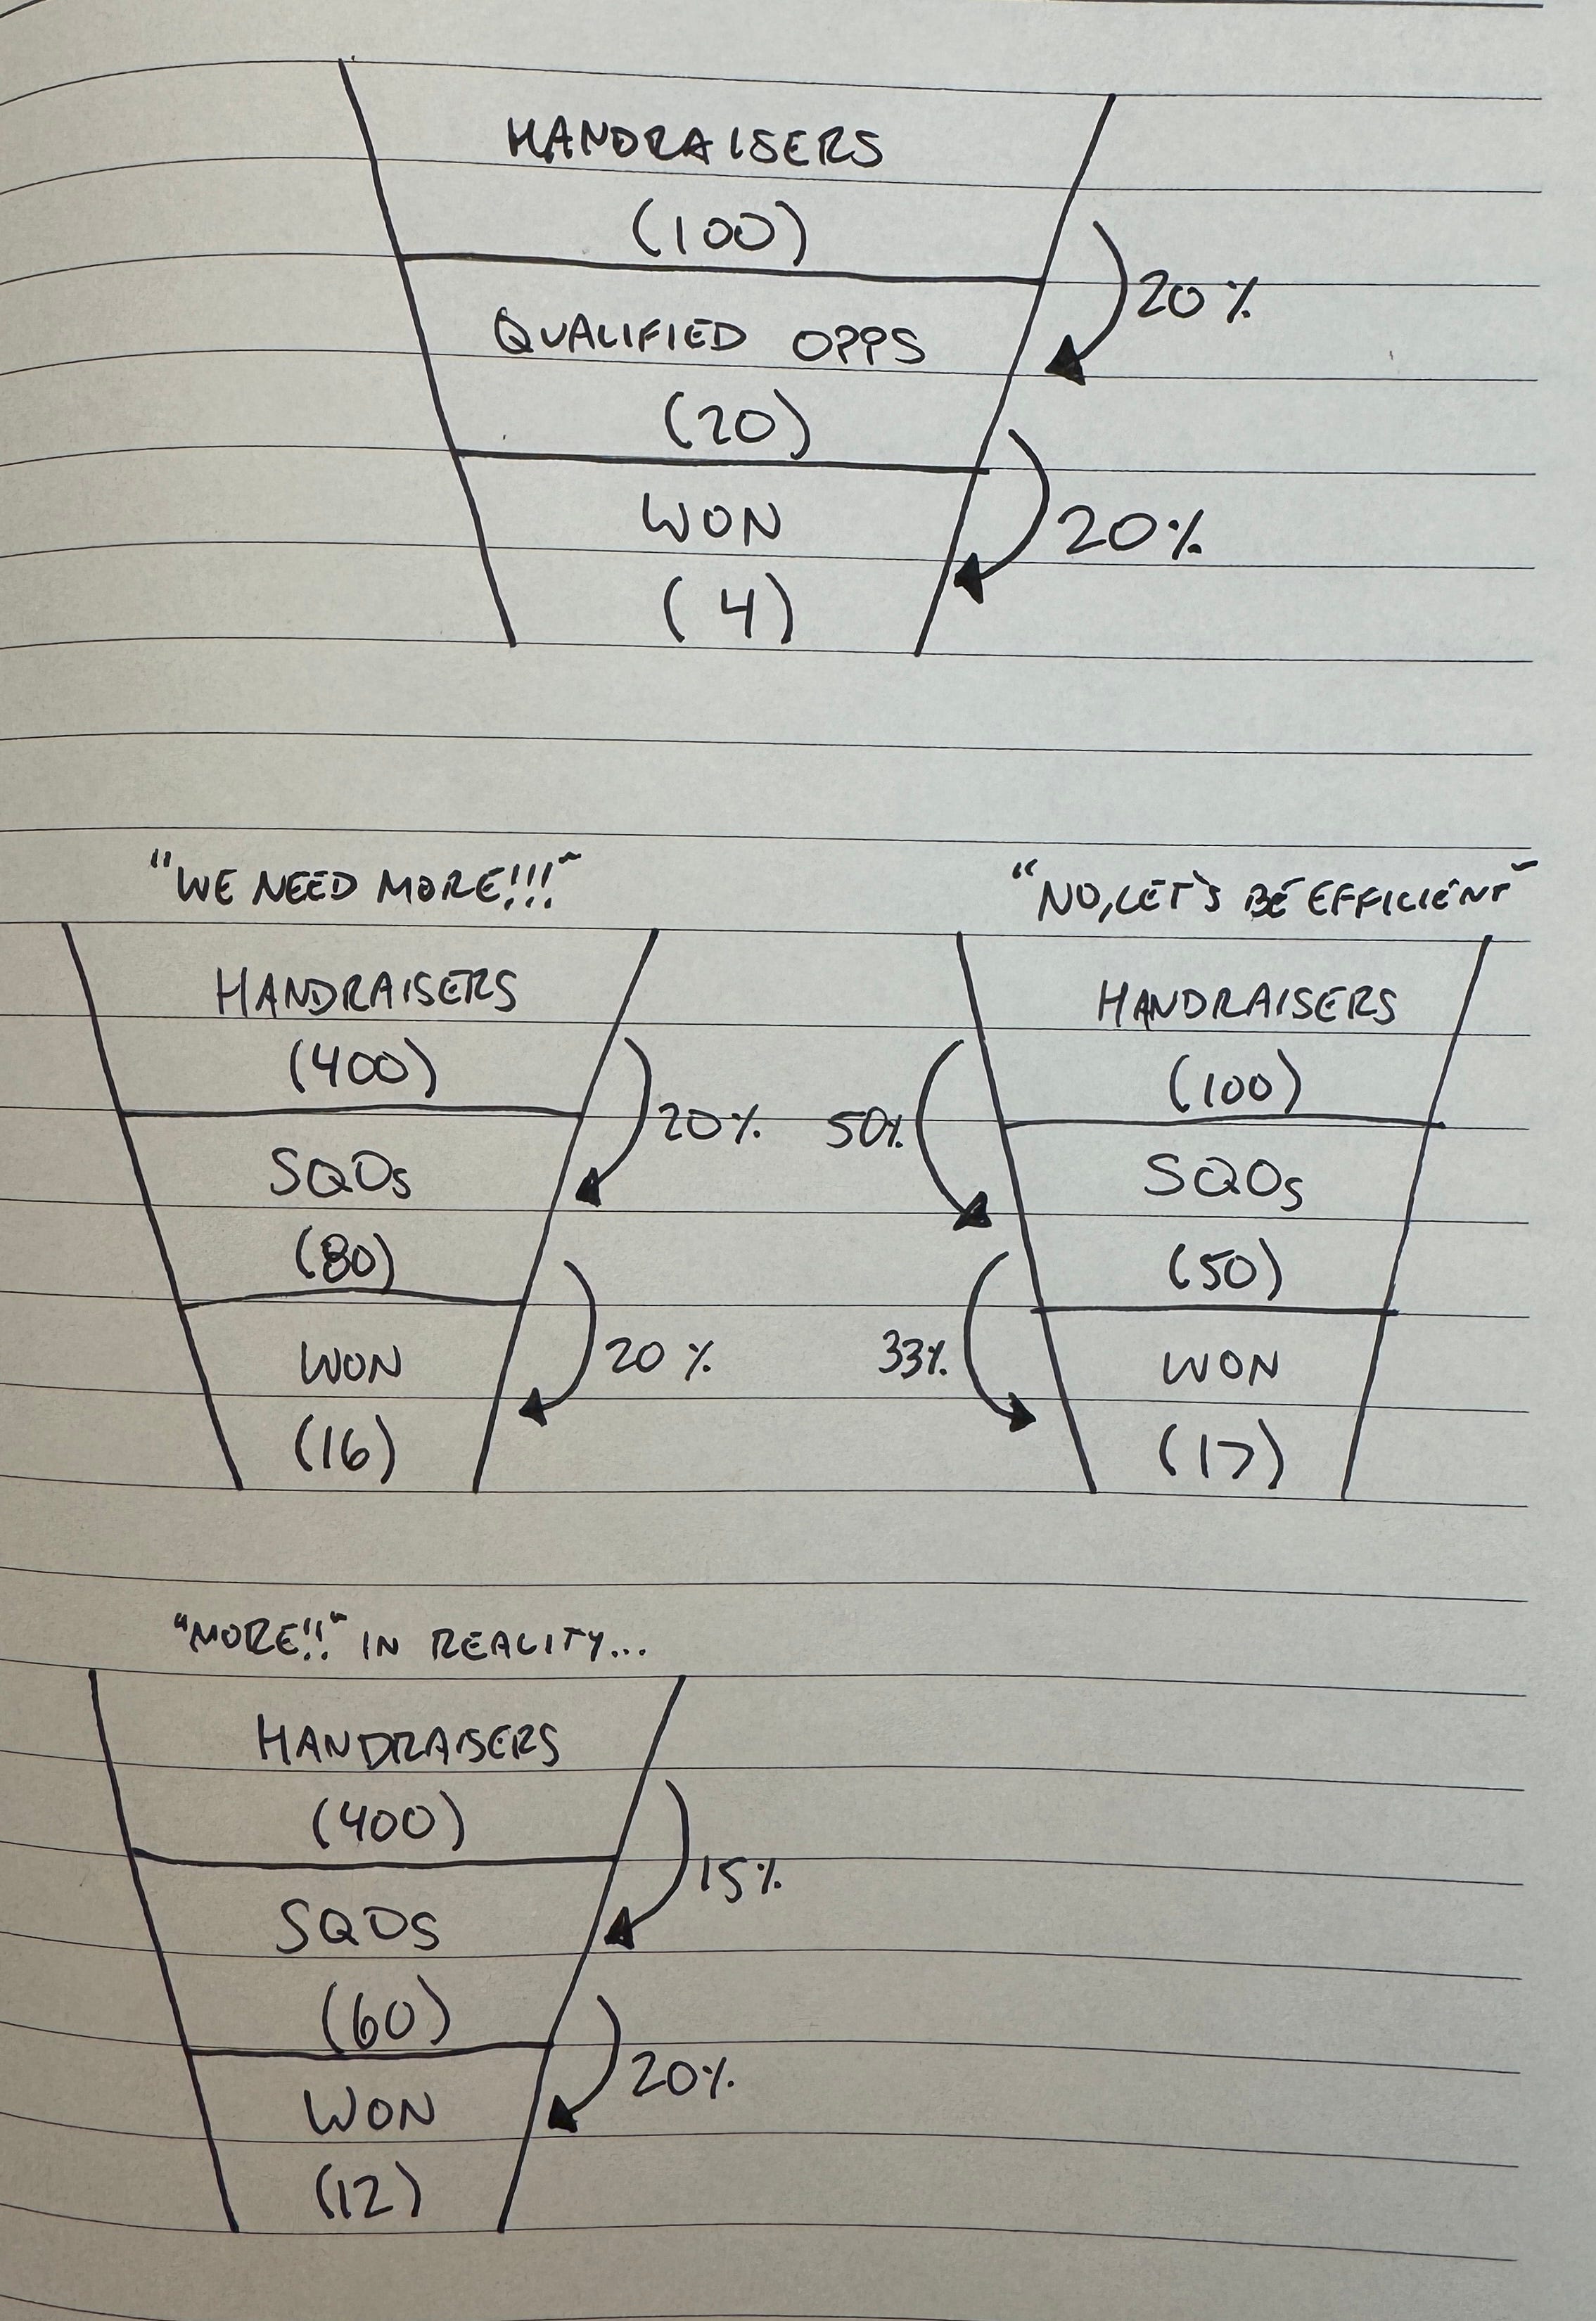 HANDRAISERS
(100)
20%
QUALIFIED OPPS
(20)
20%
WON
(4)
"WE NEED MORE!!!"
HANDRAISERS
(400)
20%
SQOs
(80)
20%
WON
(16)
"NO, LET'S BE EFFICIENT"
HANDRAISERS
(100)
50%
SQOs
(50)
33%
WON
(17)
"MORE!!" IN REALITY...
HANDRAISERS
(400)
15%
SQOs
(60)
20%
WON
(12)